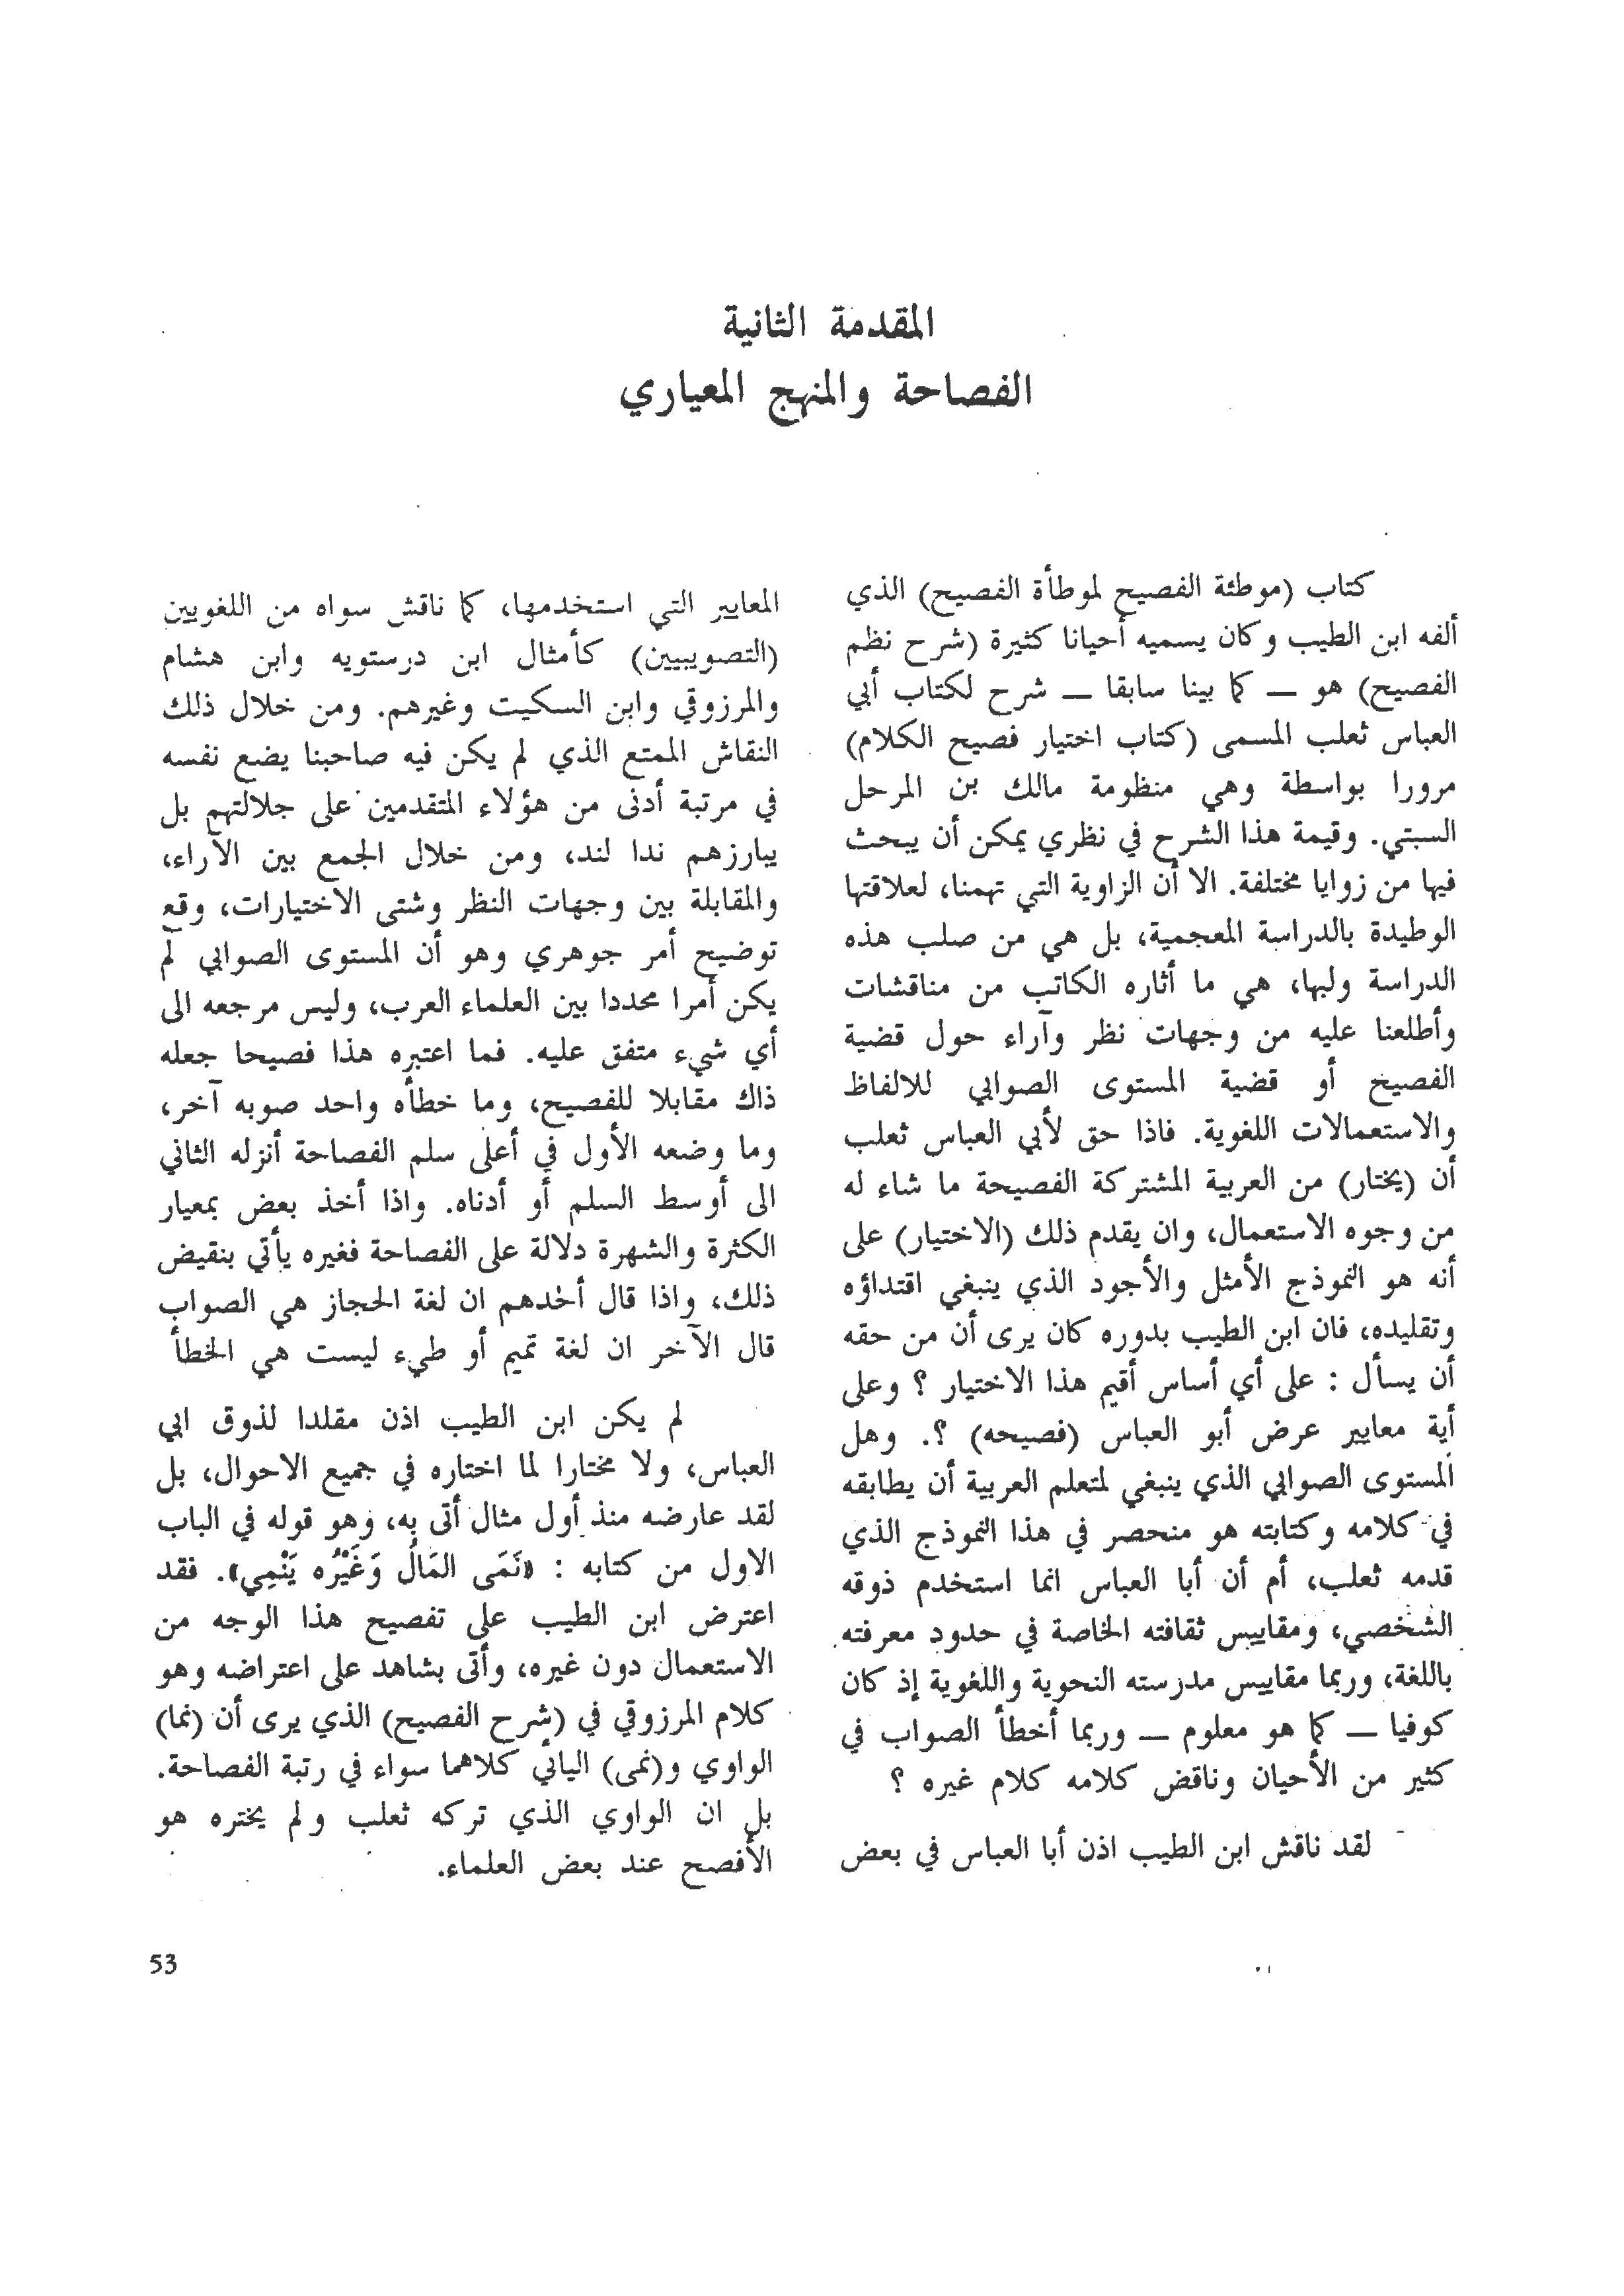 المقدمة الثانية
الفصاحة والمنهج المعياري
كتاب (موطئة الفصيح لموطأة الفصيح) الذي
ألفه ابن الطيب وكان يسميه أحيانا كثيرة (شرح نظم
الفصيح) هو — كما بينا سابقا — شرح لكتاب أبي
العباس ثعلب المسمى (كتاب اختيار فصيح الكلام)
مرورا بواسطة وهي منظومة مالك بن المرحل
السبتي. وقيمة هذا الشرح في نظري يمكن أن يبحث
فيها من زوايا مختلفة. الا أن الزاوية التي تهمنا، لعلاقتها
الوطيدة بالدراسة المعجمية، بل هي من صلب هذه
الدراسة ولبها، هي ما أثاره الكاتب من مناقشات
وأطلعنا عليه من وجهات نظر وآراء حول قضية
الفصيح أو قضية المستوى الصوابي للالفاظ
والاستعمالات اللغوية. فاذا حق لأبي العباس ثعلب
أن (يختار) من العربية المشتركة الفصيحة ما شاء له
من وجوه الاستعمال، وان يقدم ذلك (الاختيار) على
أنه هو النموذج الأمثل والأجود الذي ينبغي اقتداؤه
وتقليده، فان ابن الطيب بدوره كان يرى أن من حقه
أن يسأل : على أي أساس أقيم هذا الاختيار ؟ وعلى
أية معايير عرض أبو العباس (فصيحه) ؟. وهل
المستوى الصوابي الذي ينبغي لمتعلم العربية أن يطابقه
في كلامه وكتابته هو منحصر في هذا النموذج الذي
قدمه ثعلب، أم أن أبا العباس انما استخدم ذوقه
الشخصي، ومقاييس ثقافته الخاصة في حدود معرفته
باللغة، وربما مقاييس مدرسته النحوية واللغوية إذ كان
كوفيا — كما هو معلوم — وربما أخطأ الصواب في
كثير من الأحيان وناقض كلامه كلام غيره ؟
لقد ناقش ابن الطيب اذن أبا العباس في بعض
المعايير التي استخدمها، كما ناقش سواه من اللغويين
(التصويبيين) كأمثال ابن درستويه وابن هشام
والمرزوقي وابن السكيت وغيرهم. ومن خلال ذلك
النقاش الممتع الذي لم يكن فيه صاحبنا يضع نفسه
في مرتبة أدنى من هؤلاء المتقدمين على جلالتهم بل
يبارزهم ندا لند، ومن خلال الجمع بين الآراء،
والمقابلة بين وجهات النظر وشتى الاختيارات، وقع
توضيح أمر جوهري وهو أن المستوى الصوابي لم
يكن أمرا محددا بين العلماء العرب، وليس مرجعه الى
أي شيء متفق عليه. فما اعتبره هذا فصيحا جعله
ذاك مقابلا للفصيح، وما خطأه واحد صوبه آخر،
وما وضعه الأول في أعلى سلم الفصاحة أنزله الثاني
الى أوسط السلم أو أدناه. واذا أخذ بعض بمعيار
الكثرة والشهرة دلالة على الفصاحة فغيره يأتي بنقيض
ذلك، واذا قال أحدهم ان لغة الحجاز هي الصواب
قال الآخر ان لغة تميم أو طيء ليست هي الخطأ
لم يكن ابن الطيب اذن مقلدا لذوق ابي
العباس، ولا مختارا لما اختاره في جميع الاحوال، بل
لقد عارضه منذ أول مثال أتى به، وهو قوله في الباب
الاول من كتابه : «نَمَى المَالُ وَغَيْرُه يَنْمِي». فقد
اعترض ابن الطيب على تفصيح هذا الوجه من
الاستعمال دون غيره، وأتى بشاهد على اعتراضه وهو
كلام المرزوقي في (شرح الفصيح) الذي يرى أن (نما)
الواوي و(نمى) اليائي كلاهما سواء في رتبة الفصاحة.
بل ان الواوي الذي تركه ثعلب ولم يختره هو
الأفصح عند بعض العلماء.
53